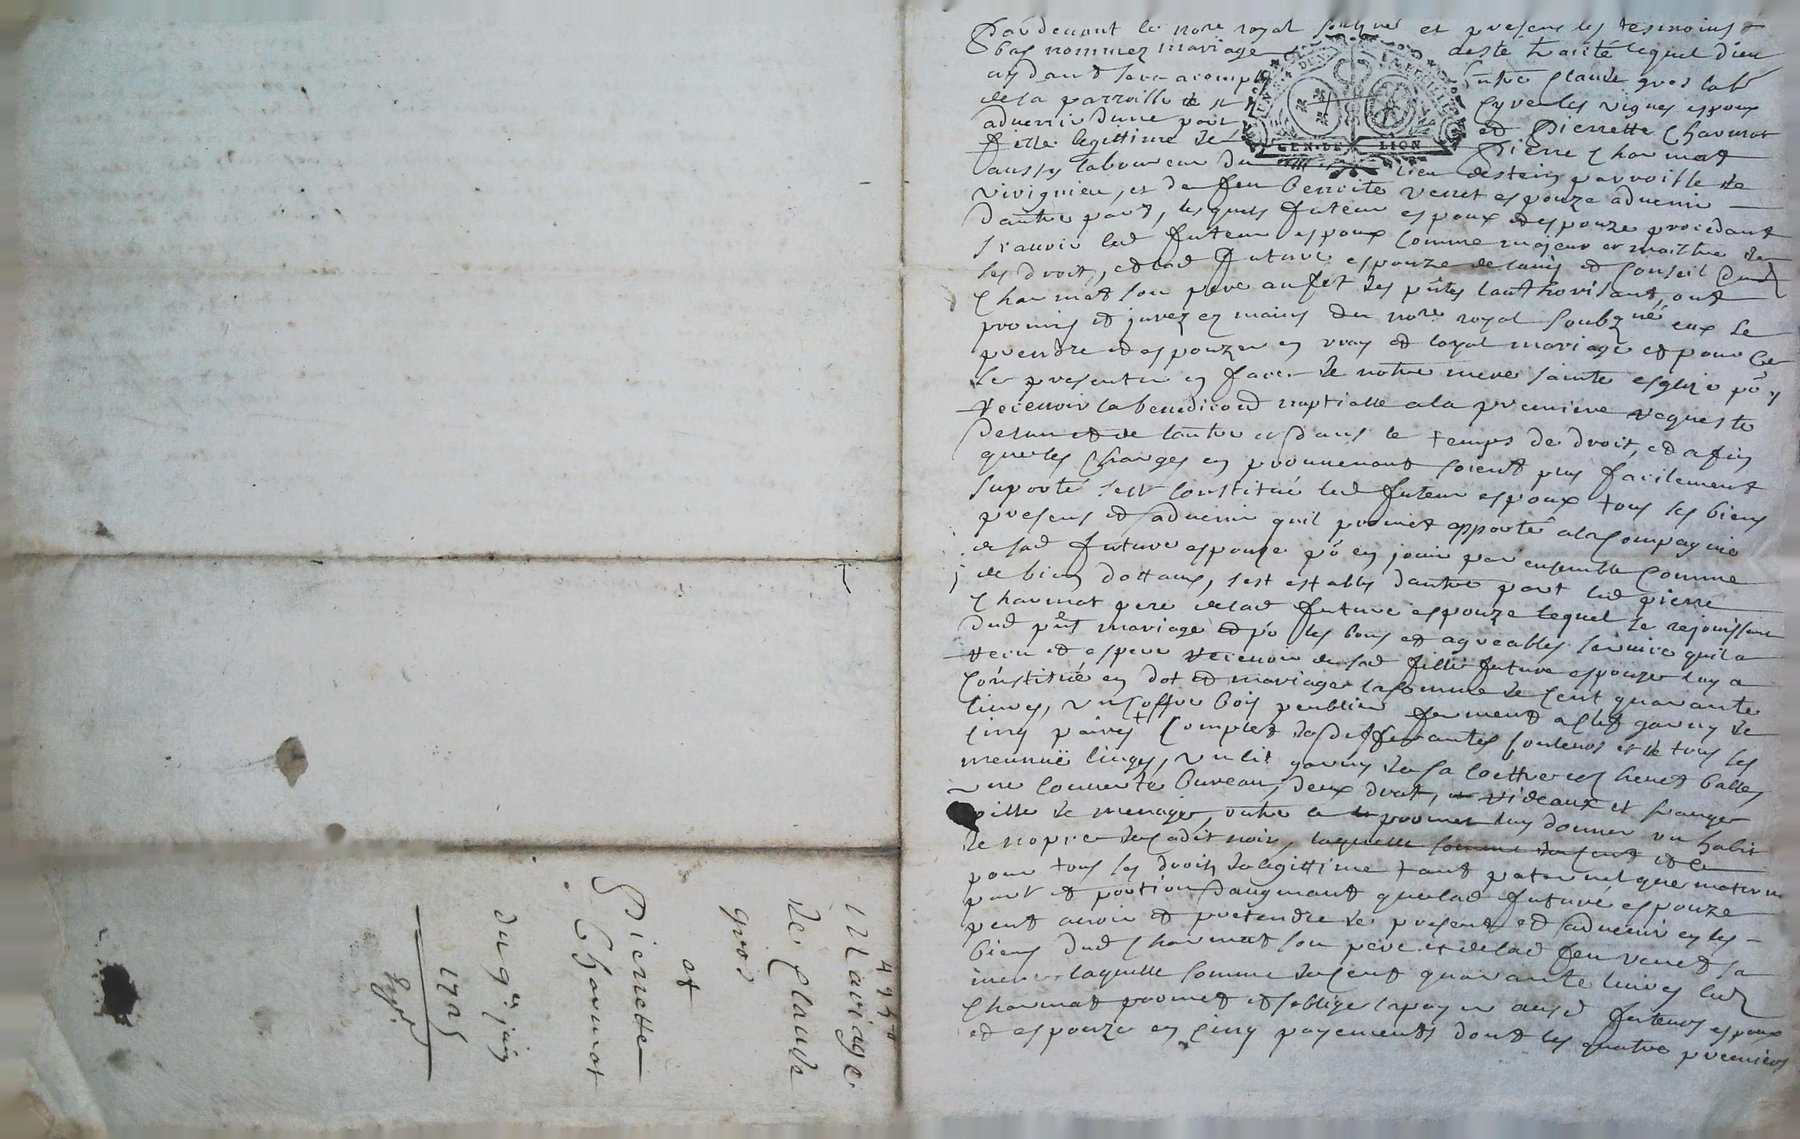 Pardevant le nore royal soubsigné et presens les tesmoins
bas nommez mariage deste traité lequel Dieu
aydant sera acomply Entre Claude gros lab
de la parroisse de st Cyre les vignes espoux
advenir dune part et Pierrette Charmot
fille legittime de Pierre Charmot
aussy laboureur du lieu destein parroisse de
vivignieu, et de feu Benoite Verret espouze advenir
dautre part, lesquels futeur espoux et espouze procedant
scavoir led futeur espoux comme majeur et maitre de
ses droit, et lad future espouze de lavis et conseil dud
Charmot son pere au fet des pntes lauthorisant, ont
promis et jurez es mains du nore royal soubzné eux se
prendre et espouzer en vray et loyal mariage et pour ce
se presenter en face de notre mere sainte esglize po y
recevoir la benediction nuptialle a la premiere requeste
de lun et de lautre et dans le temps de droit, et afin
que les charges en provenant soient plus facilement
suporté sest constitué led futeur espoux tous les biens
presens et advenir quil promet apporté a la compagnie
de sad future espouze po en jouir par ensemble comme
de bien dottaux, sest estably dautre part led pierre
Charmot pere de lad future espouze lequel se rejouissant
dud pnt mariage et po les bons et agreables service quil a
receu et espere recevoir de sad fille future espouze luy a
constitué en dot et mariage la somme de cent quarante
livres, un coffre bois fermant a clef garny de
cinq paires complet de differantes couleurs et de tous les
menuë linges, un lit garny de sa coettre
une couverte bureau, deux drat, rideaux et frange
de menage, outre ce promet luy donner un habit
de nopce de cadit noir, laquelle somme de cent et ce
pour tous les droits de legittime tant paternel que maternel
part et portion daugmant que lad future espouze
peut avoir et pretendre de present et advenir es les
biens dud Charmot son pere et de lad feu Verret sa
mere laquelle somme de cent quarante livres led
Charmot promet et soblige la payer ausd futeurs espoux
et espouze en cinq payements dont les quatre premiers
GEN·DE LION
Mariage
de Claude
gros
et
Pierrette
Charmot
du 9e juin
1725